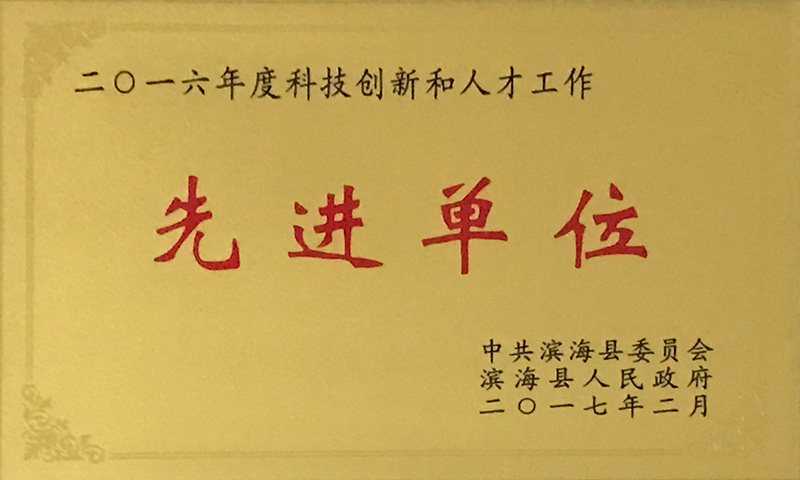 二〇一六年度科技创新和人才工作
先进单位
中共滨海县委员会
滨海县人民政府
二〇一七年二月